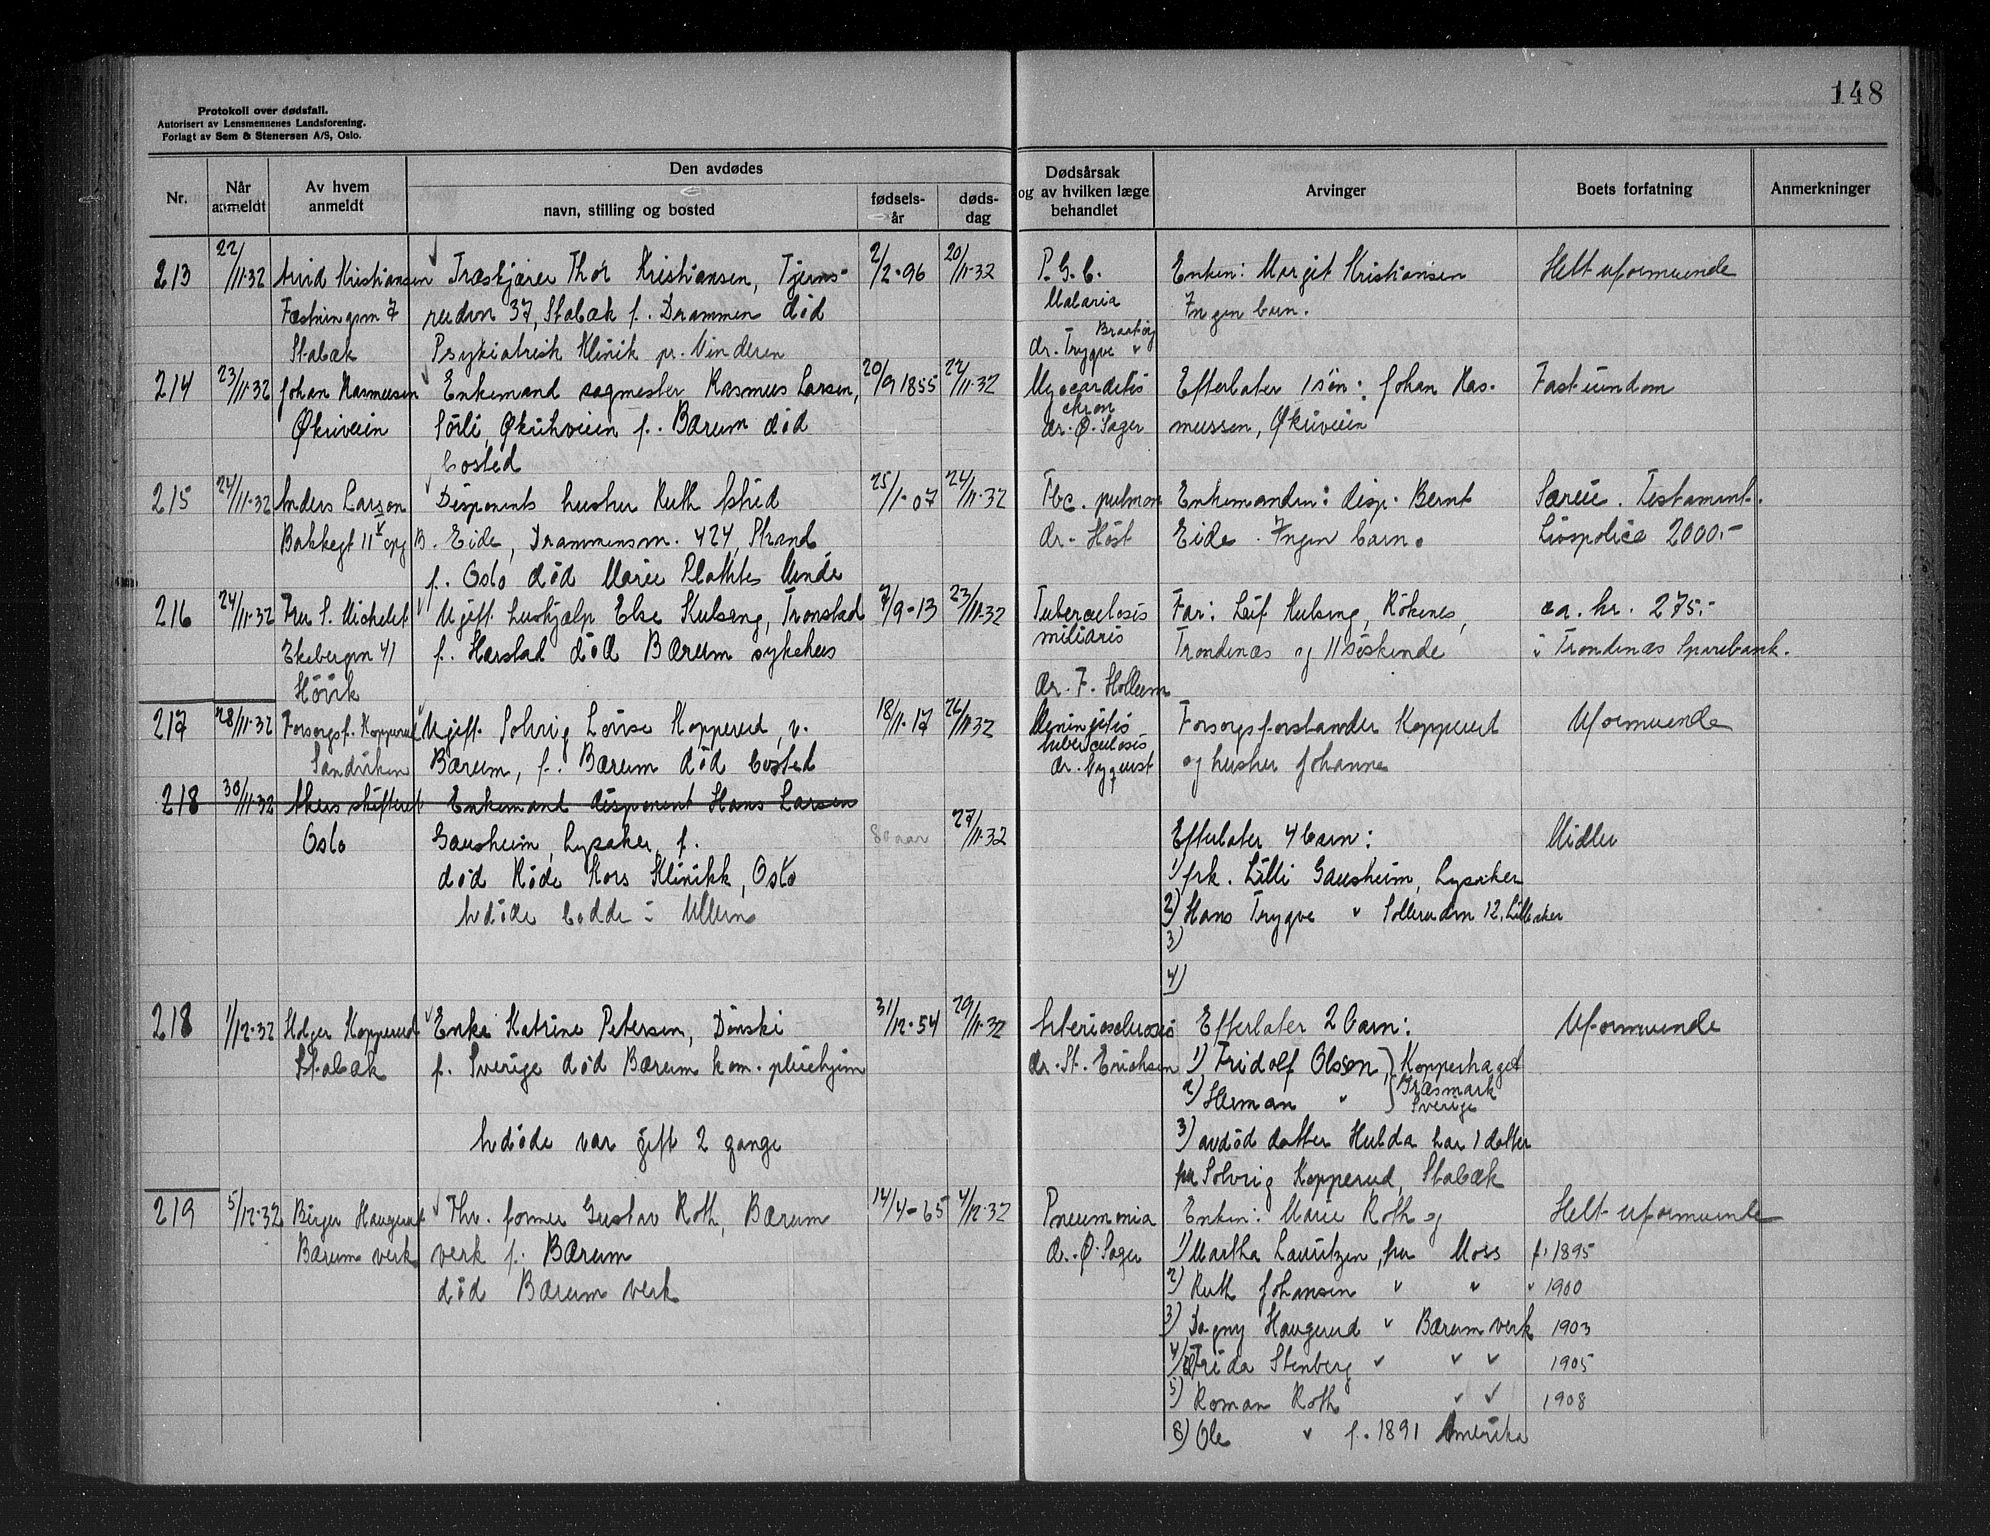 148
Protokoll over dødsfall.
Autorisert av Lensmennenes Landsforening.
Forlagt av Sem & Stenersen A/S, Oslo.
Nr.
Når anmeldt
Av hvem anmeldt
Den avdødes
navn, stilling og bosted
fødsels-år
døds-dag
Dødsårsak og av hvilken læge behandlet
Arvinger
Boets forfatning
Anmerkninger
213 22/11-32 Arvid Kristiansen Træskjærer Thor Kristiansen, Tjerns- 2/2-96 20/11-32 P.G.C. Enken: Margit Kristiansen Helt uformuende
Festningsvn 7 rudvn 37, Stabæk f. Drammen død Malaria Ingen barn.
Stabæk Psykiatrisk Klinik pr. Vinderen dr. Trygve Braatøy
214 23/11-32 Johan Rasmussen Enkemand sagmester Rasmus Larsen, 20/9 1855 22/11-32 Myocarditis Efterlater 1 søn: Johan Ras- Fast eiendom
Økriveien Sørli, Økrihveien f. Bærum død chron mussen, Økriveien
bosted dr. Ø. Sager
215 24/11-32 Anders Larson Disponents hustru Ruth Astrid 25/1-07 24/11-32 Tbc. pulmon Enkemanden: disp. Bernt Særeie. Testament.
Bakkegt 11 V opg B. Eide, Drammensvn. 424, Strand dr. Høst Eide. Ingen barn. Livspolice 2000.-
f. Oslo død Marie Plathes Minde
216 24/11-32 Fru S. Michelet Ugift hushjælp Else Kulseng, Tronstad 7/9-13 23/11-32 Tuberculosis Far: Leif Kulseng, Røkenes, ca. kr. 275.-
Ekebergvn 41 f. Harstad død Bærum sykehus miliaris Trondenæs og 11 søskende i Trondenæs Sparebank.
Høvik dr. F. Hollum
217 28/11-32 Forsorgsf. Kopperud Ugift Solveig Lovise Kopperud, v. 18/11-17 26/11-32 Meningitis Forsorgsforstander Kopperud Uformuende
Sandviken Bærum, f. Bærum død bosted tuberculosis og hustru Johanne
dr. Nyquist
218 30/11-32 Akers skifterett Enkemand disponent Hans Larsen
Oslo Gausheim, Lysaker, f. 80 aar 27/11-32 Efterlater 4 barn: Midler
død Røde Kors Klinikk, Oslo 1) frk. Lilli Gausheim, Lysaker
Avdøde bodde i Ullern 2) Hans Trygve " Sollerudvn 12, Lilleaker
3)
4)
218 1/12-32 Holger Kopperud Enke Katrine Petersen, Dønski 31/12-54 29/11-32 Arteriosclerosis Efterlater 2 barn: Uformuende
Stabæk f. Sverige død Bærum kom. pleiehjem dr. St. Erichsen 1) Fridolf Olsson, } Kopperhaget
2) Herman " } Græsmark Sverige
Avdøde var gift 2 gange 3) avdød datter Hulda har 1 datter
fru Solveig Kopperud, Stabæk
219 5/12-32 Birger Haugerud Fhv. former Gustav Roth, Bærum 14/4-65 4/12-32 Pneumonia Enken: Marie Roth og Helt uformuende
Bærum verk verk f. Bærum dr. Ø. Sager 1) Martha Lauritzen, fru Moss f. 1895
død Bærum verk 2) Ruth Johansen " " " 1900
3) Dagny Haugerud " Bærum verk 1903
4) Frida Stenberg " " " 1905
5) Roman Roth " " 1908
8) Ole " f. 1891 Amerika